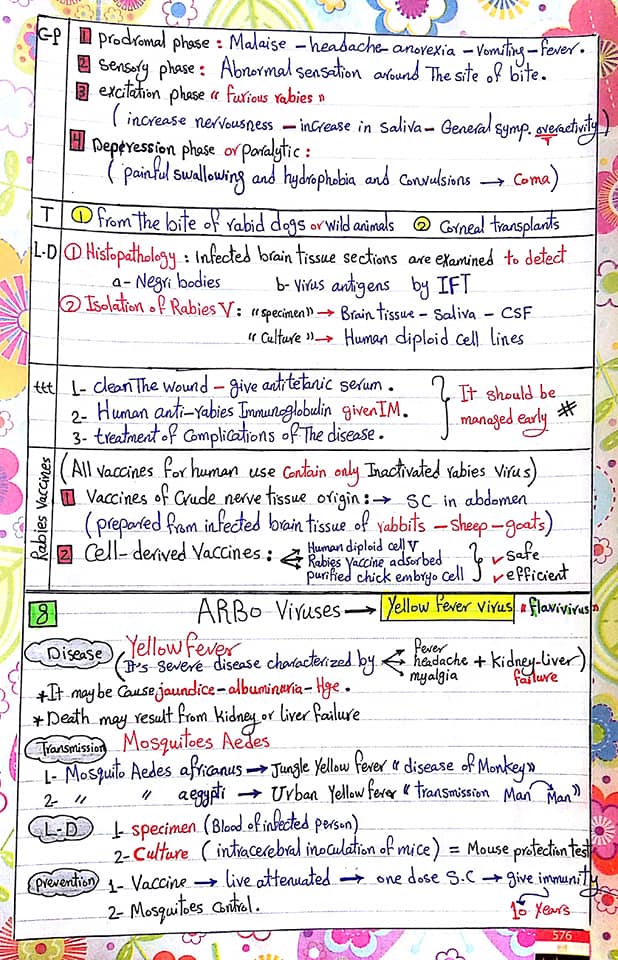 C-P
1 prodromal phase : Malaise - headache - anorexia - Vomiting - fever.
2 sensory phase : Abnormal sensation around The site of bite.
3 excitation phase " furious rabies "
( increase nervousness - increase in Saliva - General symp. overactivity )
4 Depression phase or paralytic :
( painful swallowing and hydrophobia and Convulsions → Coma )
T
① from the bite of rabid dogs or wild animals ② Corneal transplants
L.D
① Histopathology : Infected brain tissue sections are examined to detect
a- Negri bodies b- Virus antigens by IFT
② Isolation of Rabies V : "specimen" → Brain tissue - Saliva - CSF
"Culture" → Human diploid cell lines
ttt
1- clean The wound - give antitetanic serum.
2- Human anti-rabies Immunoglobulin given IM.
3- treatment of Complications of The disease.
It should be
managed early #
Rabies Vaccines
(All vaccines for human use Contain only Inactivated rabies Virus)
1 Vaccines of Crude nerve tissue origin : → SC in abdomen
( prepared from infected brain tissue of rabbits - sheep - goats )
2 Cell-derived Vaccines :
Human diploid cell V
Rabies Vaccine adsorbed
purified chick embryo cell
✓ safe
✓ efficient
8 ARBo Viruses → Yellow Fever virus "flavivirus"
Disease Yellow fever
(It's severe disease characterized by
fever
headache
myalgia
+ kidney-liver )
failure
* It may be Cause jaundice - albuminuria - Hge.
* Death may result from kidney or liver failure
Transmission Mosquitoes Aedes
1- Mosquito Aedes africanus → Jungle Yellow fever " disease of Monkey"
2- " " aegypti → Urban Yellow fever " transmission Man Man"
L-D 1- specimen (Blood of infected person)
2- Culture ( intracerebral inoculation of mice ) = Mouse protection test
prevention 1- Vaccine → live attenuated → one dose S.C → give immunity
10 Years
2- Mosquitoes Control.
576